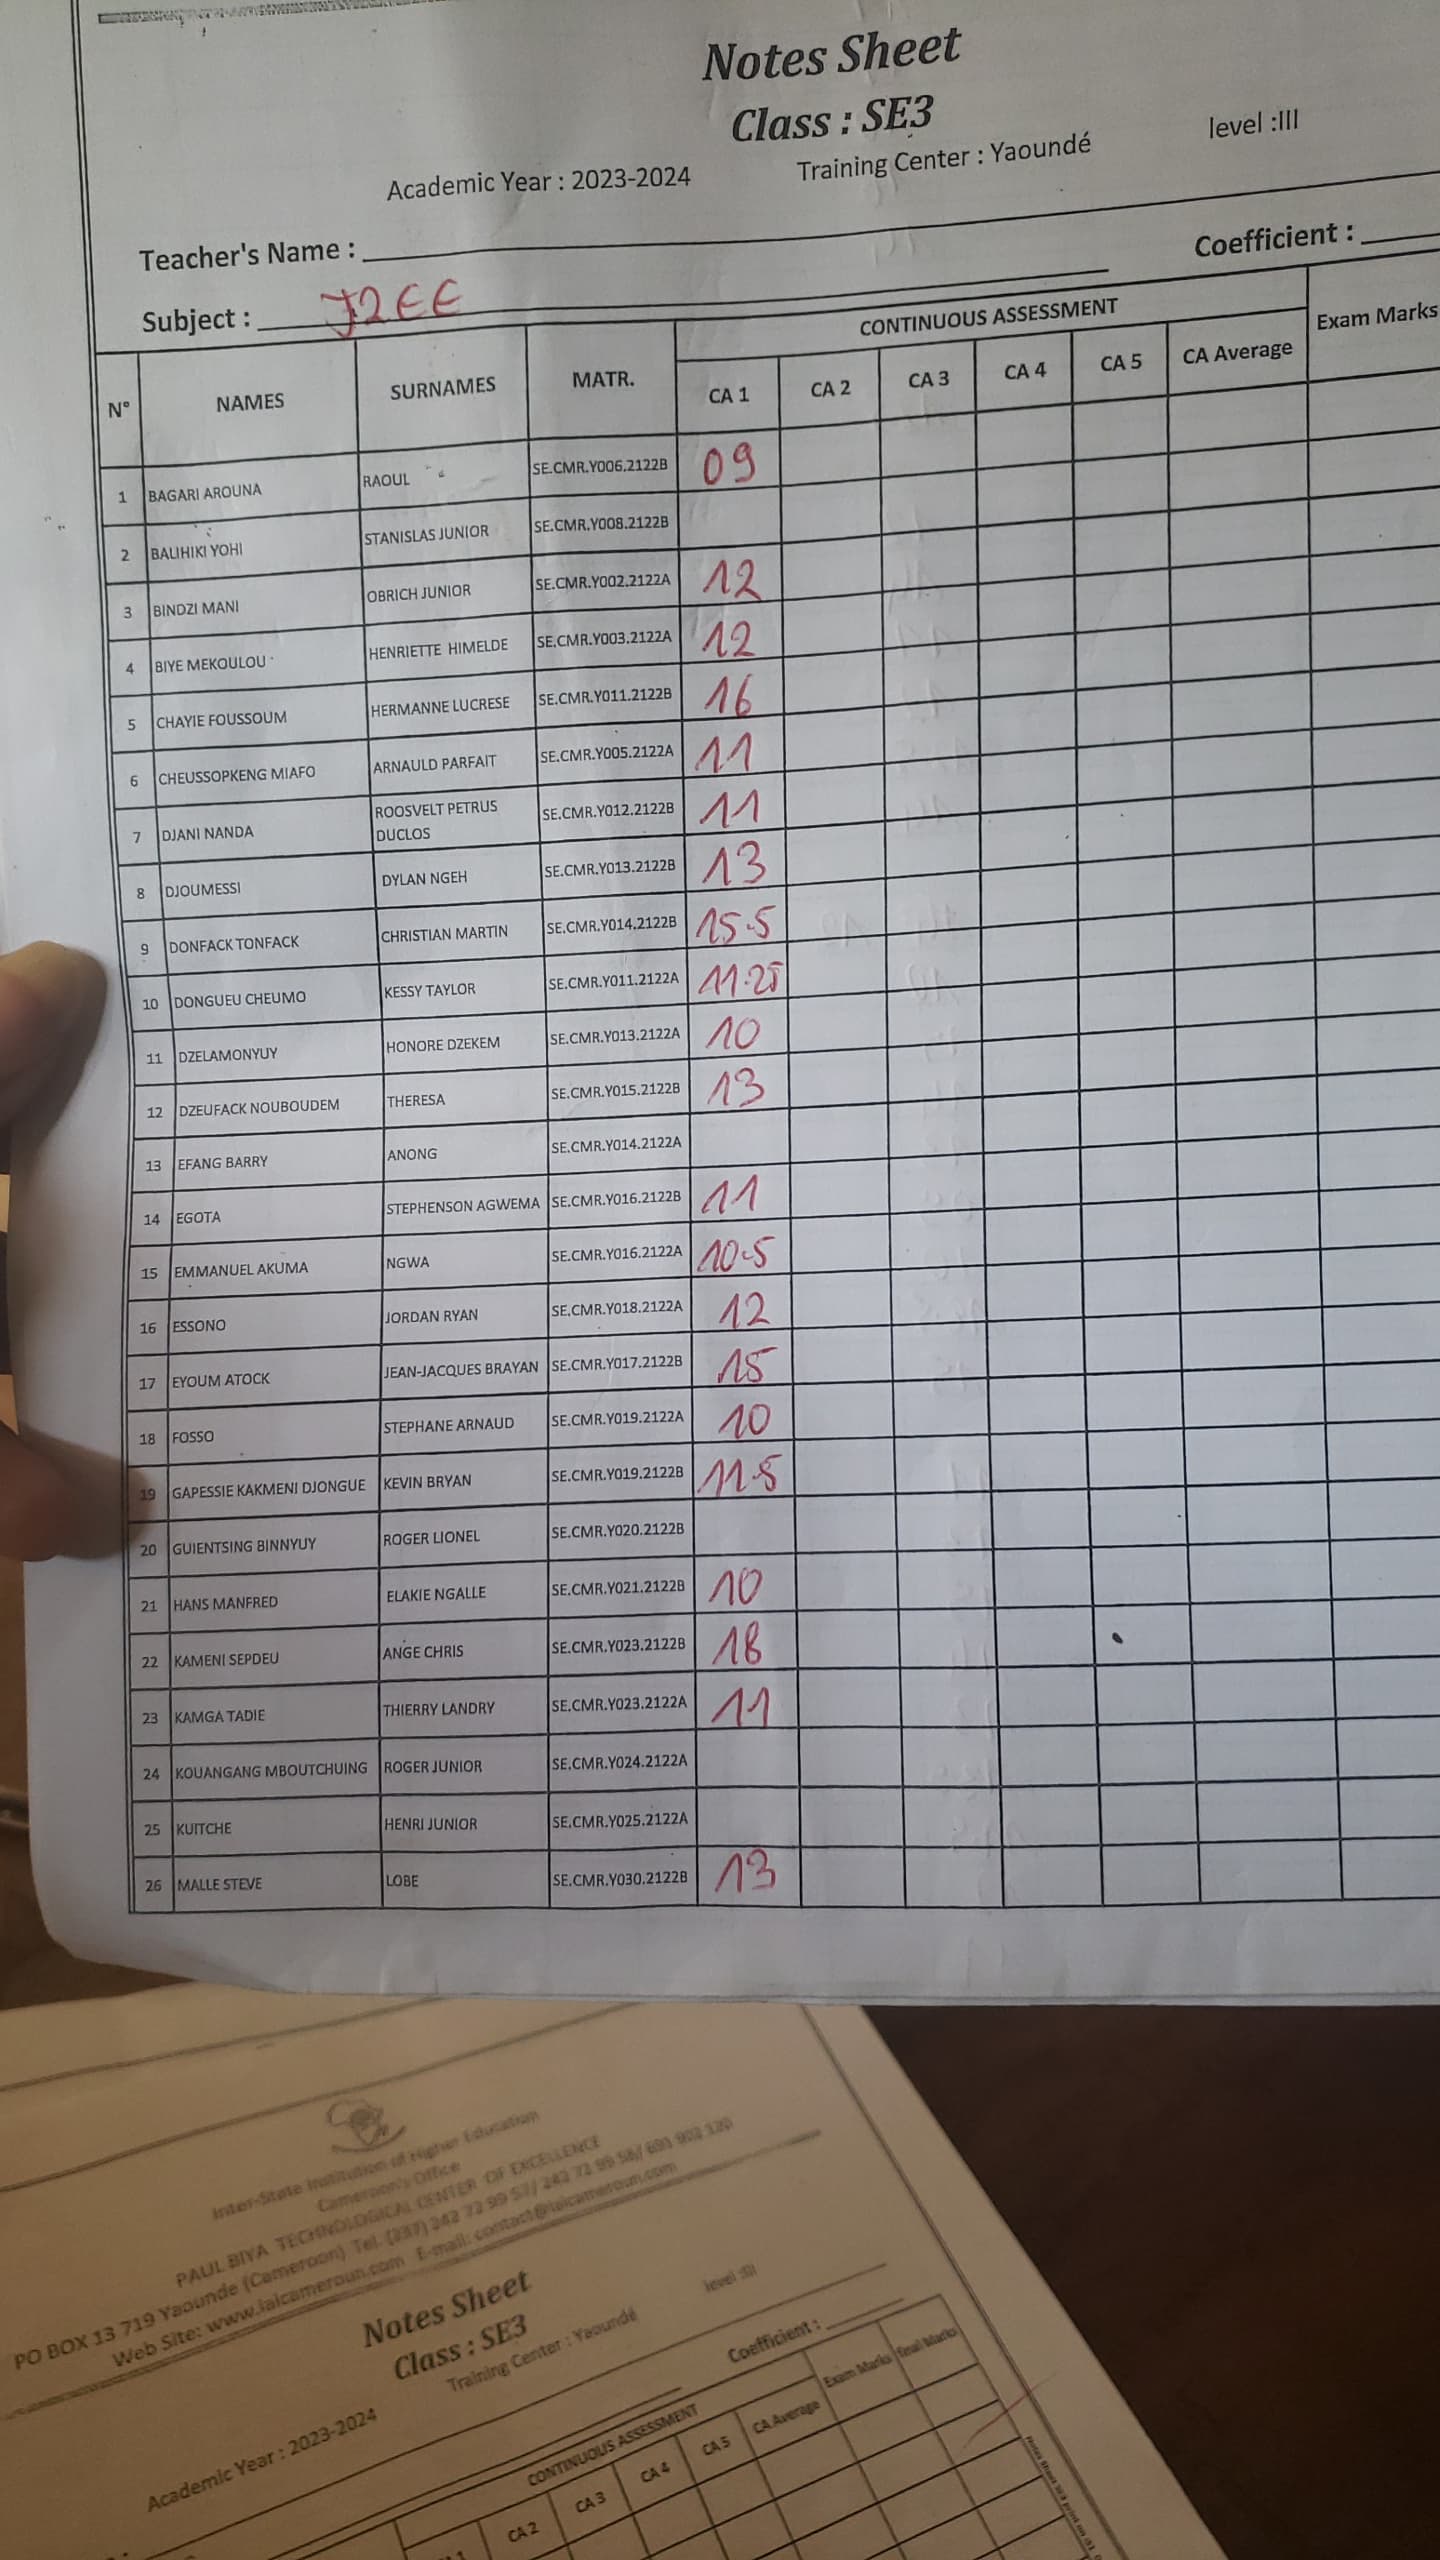 Notes Sheet
Class : SE3
Academic Year : 2023-2024 Training Center : Yaoundé level :III
Teacher's Name :
Coefficient :
Subject : J2EE
N° NAMES SURNAMES MATR. CONTINUOUS ASSESSMENT Exam Marks
CA 1 CA 2 CA 3 CA 4 CA 5 CA Average
1 BAGARI AROUNA RAOUL SE.CMR.Y006.2122B 09
2 BALIHIKI YOHI STANISLAS JUNIOR SE.CMR.Y008.2122B
3 BINDZI MANI OBRICH JUNIOR SE.CMR.Y002.2122A 12
4 BIYE MEKOULOU HENRIETTE HIMELDE SE.CMR.Y003.2122A 12
5 CHAYIE FOUSSOUM HERMANNE LUCRESE SE.CMR.Y011.2122B 16
6 CHEUSSOPKENG MIAFO ARNAULD PARFAIT SE.CMR.Y005.2122A 11
7 DJANI NANDA ROOSVELT PETRUS DUCLOS SE.CMR.Y012.2122B 11
8 DJOUMESSI DYLAN NGEH SE.CMR.Y013.2122B 13
9 DONFACK TONFACK CHRISTIAN MARTIN SE.CMR.Y014.2122B 15.5
10 DONGUEU CHEUMO KESSY TAYLOR SE.CMR.Y011.2122A 11.25
11 DZELAMONYUY HONORE DZEKEM SE.CMR.Y013.2122A 10
12 DZEUFACK NOUBOUDEM THERESA SE.CMR.Y015.2122B 13
13 EFANG BARRY ANONG SE.CMR.Y014.2122A
14 EGOTA STEPHENSON AGWEMA SE.CMR.Y016.2122B 11
15 EMMANUEL AKUMA NGWA SE.CMR.Y016.2122A 10.5
16 ESSONO JORDAN RYAN SE.CMR.Y018.2122A 12
17 EYOUM ATOCK JEAN-JACQUES BRAYAN SE.CMR.Y017.2122B 15
18 FOSSO STEPHANE ARNAUD SE.CMR.Y019.2122A 10
19 GAPESSIE KAKMENI DJONGUE KEVIN BRYAN SE.CMR.Y019.2122B 11.5
20 GUIENTSING BINNYUY ROGER LIONEL SE.CMR.Y020.2122B
21 HANS MANFRED ELAKIE NGALLE SE.CMR.Y021.2122B 10
22 KAMENI SEPDEU ANGE CHRIS SE.CMR.Y023.2122B 18
23 KAMGA TADIE THIERRY LANDRY SE.CMR.Y023.2122A 11
24 KOUANGANG MBOUTCHUING ROGER JUNIOR SE.CMR.Y024.2122A
25 KUITCHE HENRI JUNIOR SE.CMR.Y025.2122A
26 MALLE STEVE LOBE SE.CMR.Y030.2122B 13
Inter-State Institution of Higher Education
Cameroon's Office
PAUL BIYA TECHNOLOGICAL CENTER OF EXCELLENCE
PO BOX 13 719 Yaounde (Cameroon) Tel. (237) 242 72 99 57/ 242 72 99 58/ 693 902 120
Web Site: www.iaicameroun.com E-mail: contact@iaicameroun.com
Notes Sheet
Class : SE3
Academic Year : 2023-2024 Training Center : Yaoundé level :III
Coefficient :
CONTINUOUS ASSESSMENT Exam Marks Marks
CA 2 CA 3 CA 4 CA 5 CA Average